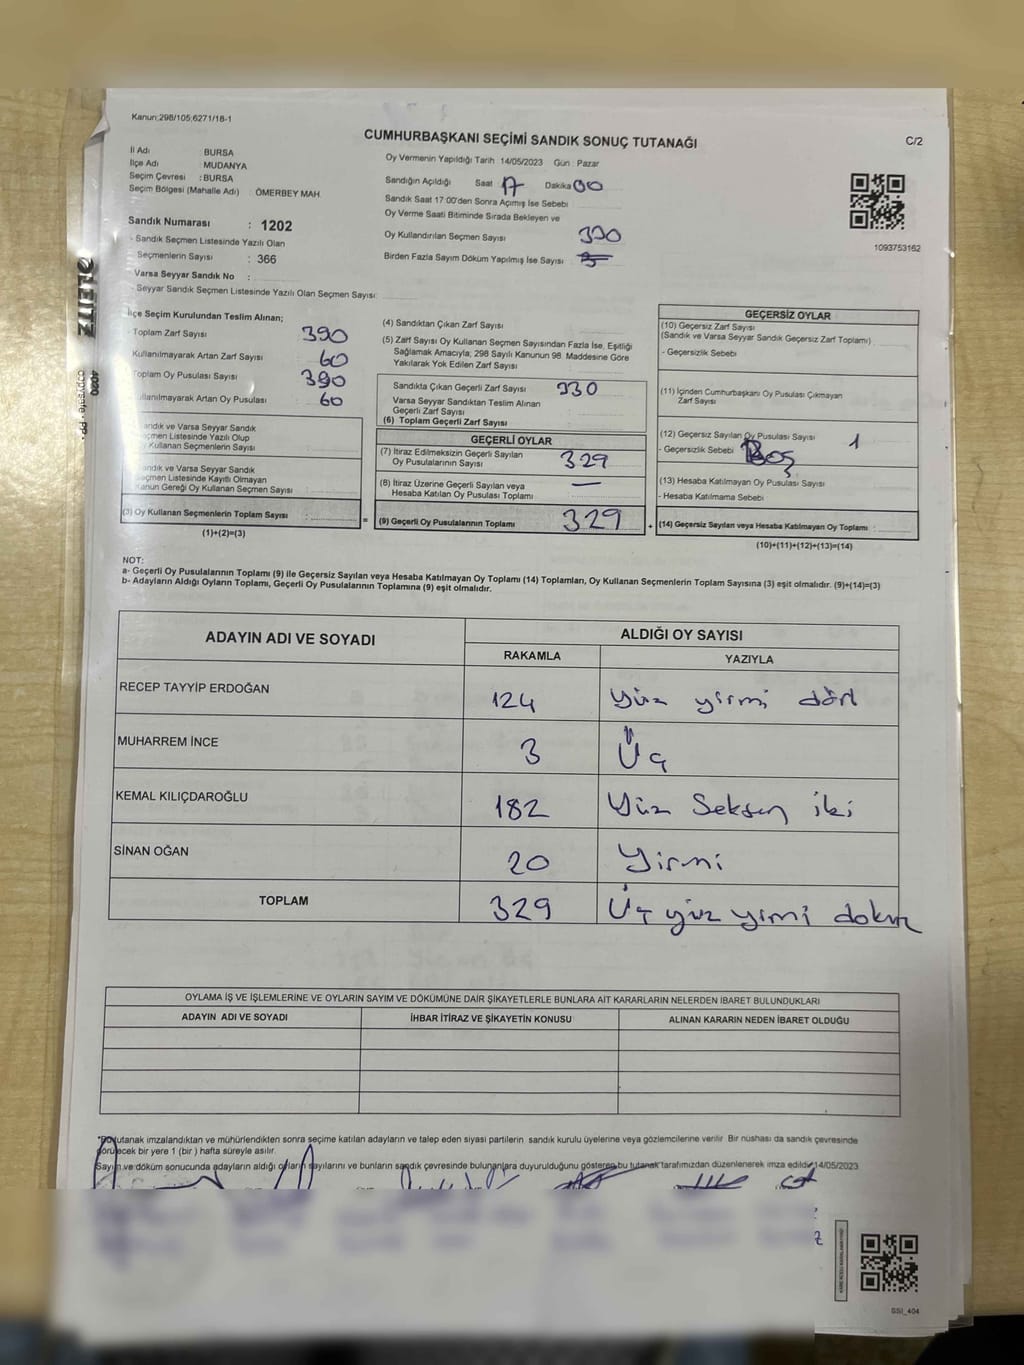 Kanun:298/105;6271/18-1
CUMHURBAŞKANI SEÇİMİ SANDIK SONUÇ TUTANAĞI
C/2
İl Adı : BURSA
İlçe Adı : MUDANYA
Seçim Çevresi : BURSA
Seçim Bölgesi (Mahalle Adı) : ÖMERBEY MAH
Sandık Numarası : 1202
- Sandık Seçmen Listesinde Yazılı Olan
Seçmenlerin Sayısı : 366
Varsa Seyyar Sandık No :
- Seyyar Sandık Seçmen Listesinde Yazılı Olan Seçmen Sayısı:
Oy Vermenin Yapıldığı Tarih : 14/05/2023 Gün : Pazar
Sandığın Açıldığı Saat 17 Dakika 00
Sandık Saat 17:00'den Sonra Açımış İse Sebebi :
Oy Verme Saati Bitiminde Sırada Bekleyen ve
Oy Kullandırılan Seçmen Sayısı 330
Birden Fazla Sayım Döküm Yapılmış İse Sayısı :
1093753162
İlçe Seçim Kurulundan Teslim Alınan;
- Toplam Zarf Sayısı 390
Kullanılmayarak Artan Zarf Sayısı 60
Toplam Oy Pusulası Sayısı 390
Kullanılmayarak Artan Oy Pusulası 60
andık ve Varsa Seyyar Sandık
çmen Listesinde Yazılı Olup
Kullanan Seçmenlerin Sayısı
andık ve Varsa Seyyar Sandık
eçmen Listesinde Kayıtlı Olmayan
Kanun Gereği Oy Kullanan Seçmen Sayısı :
(3) Oy Kullanan Seçmenlerin Toplam Sayısı :
(1)+(2)=(3)
=
(4) Sandıktan Çıkan Zarf Sayısı
(5) Zarf Sayısı Oy Kullanan Seçmen Sayısından Fazla İse, Eşitliği
Sağlamak Amacıyla; 298 Sayılı Kanunun 98. Maddesine Göre
Yakılarak Yok Edilen Zarf Sayısı
Sandıkta Çıkan Geçerli Zarf Sayısı 330
Varsa Seyyar Sandıktan Teslim Alınan
Geçerli Zarf Sayısı
(6) Toplam Geçerli Zarf Sayısı
GEÇERLİ OYLAR
(7) İtiraz Edilmeksizin Geçerli Sayılan
Oy Pusulalarının Sayısı 329
(8) İtiraz Üzerine Geçerli Sayılan veya
Hesaba Katılan Oy Pusulası Toplamı —
(9) Geçerli Oy Pusulalarının Toplamı 329
+
GEÇERSİZ OYLAR
(10) Geçersiz Zarf Sayısı
(Sandık ve Varsa Seyyar Sandık Geçersiz Zarf Toplamı)
- Geçersizlik Sebebi
(11) İçinden Cumhurbaşkanı Oy Pusulası Çıkmayan
Zarf Sayısı
(12) Geçersiz Sayılan Oy Pusulası Sayısı 1
- Geçersizlik Sebebi Boş
(13) Hesaba Katılmayan Oy Pusulası Sayısı
- Hesaba Katılmama Sebebi
(14) Geçersiz Sayılan veya Hesaba Katılmayan Oy Toplamı :
(10)+(11)+(12)+(13)=(14)
NOT:
a- Geçerli Oy Pusulalarının Toplamı (9) ile Geçersiz Sayılan veya Hesaba Katılmayan Oy Toplamı (14) Toplamları, Oy Kullanan Seçmenlerin Toplam Sayısına (3) eşit olmalıdır. (9)+(14)=(3)
b- Adayların Aldığı Oyların Toplamı, Geçerli Oy Pusulalarının Toplamına (9) eşit olmalıdır.
ADAYIN ADI VE SOYADI
ALDIĞI OY SAYISI
RAKAMLA
YAZIYLA
RECEP TAYYİP ERDOĞAN 124 Yüz yirmi dört
MUHARREM İNCE 3 Üç
KEMAL KILIÇDAROĞLU 182 Yüz Seksen iki
SİNAN OĞAN 20 Yirmi
TOPLAM 329 Üç yüz yirmi dokuz
OYLAMA İŞ VE İŞLEMLERİNE VE OYLARIN SAYIM VE DÖKÜMÜNE DAİR ŞİKAYETLERLE BUNLARA AİT KARARLARIN NELERDEN İBARET BULUNDUKLARI
ADAYIN ADI VE SOYADI
İHBAR İTİRAZ VE ŞİKAYETİN KONUSU
ALINAN KARARIN NEDEN İBARET OLDUĞU
*Bu tutanak imzalandıktan ve mühürlendikten sonra seçime katılan adayların ve talep eden siyasi partilerin sandık kurulu üyelerine veya gözlemcilerine verilir. Bir nüshası da sandık çevresinde
görülecek bir yere 1 (bir ) hafta süreyle asılır.
Sayım ve döküm sonucunda adayların aldığı oyların sayılarını ve bunların sandık çevresinde bulunanlara duyurulduğunu gösteren bu tutanak tarafımızdan düzenlenerek imza edildi. 14/05/2023
GSI_404
LEITZ
4020
copysafe - PP -